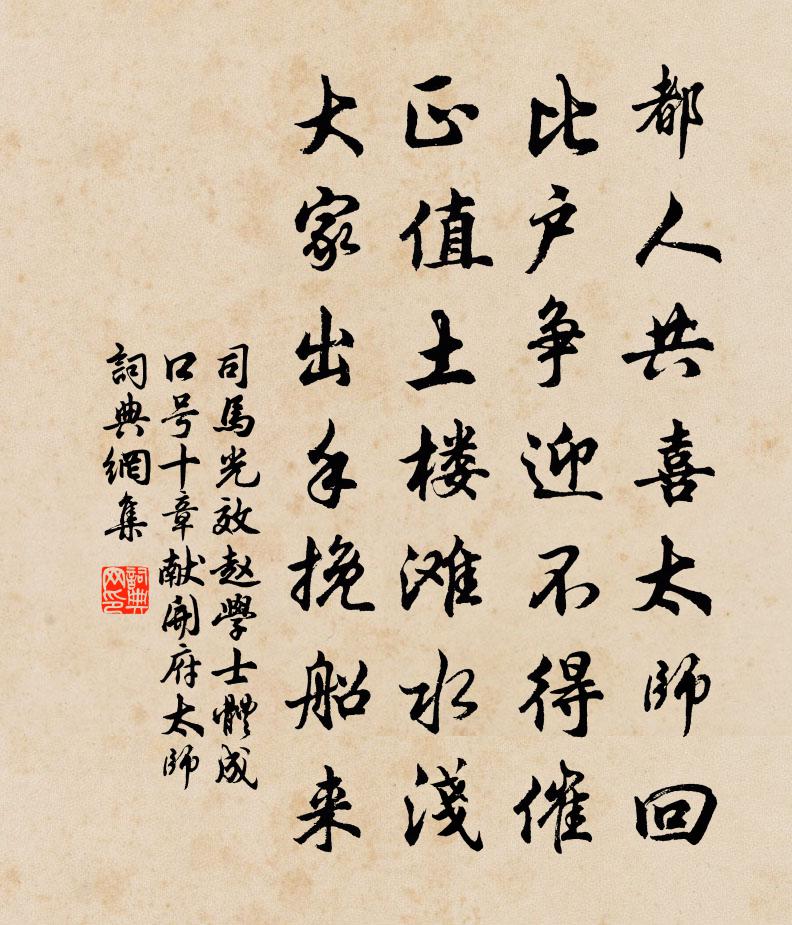 都人共喜太师回
比户争迎不得催
正值土楼滩水淺
大家出手挽船来
司馬光效赵學士體成
口号十章献開府太师
詞典網集
詞典网印